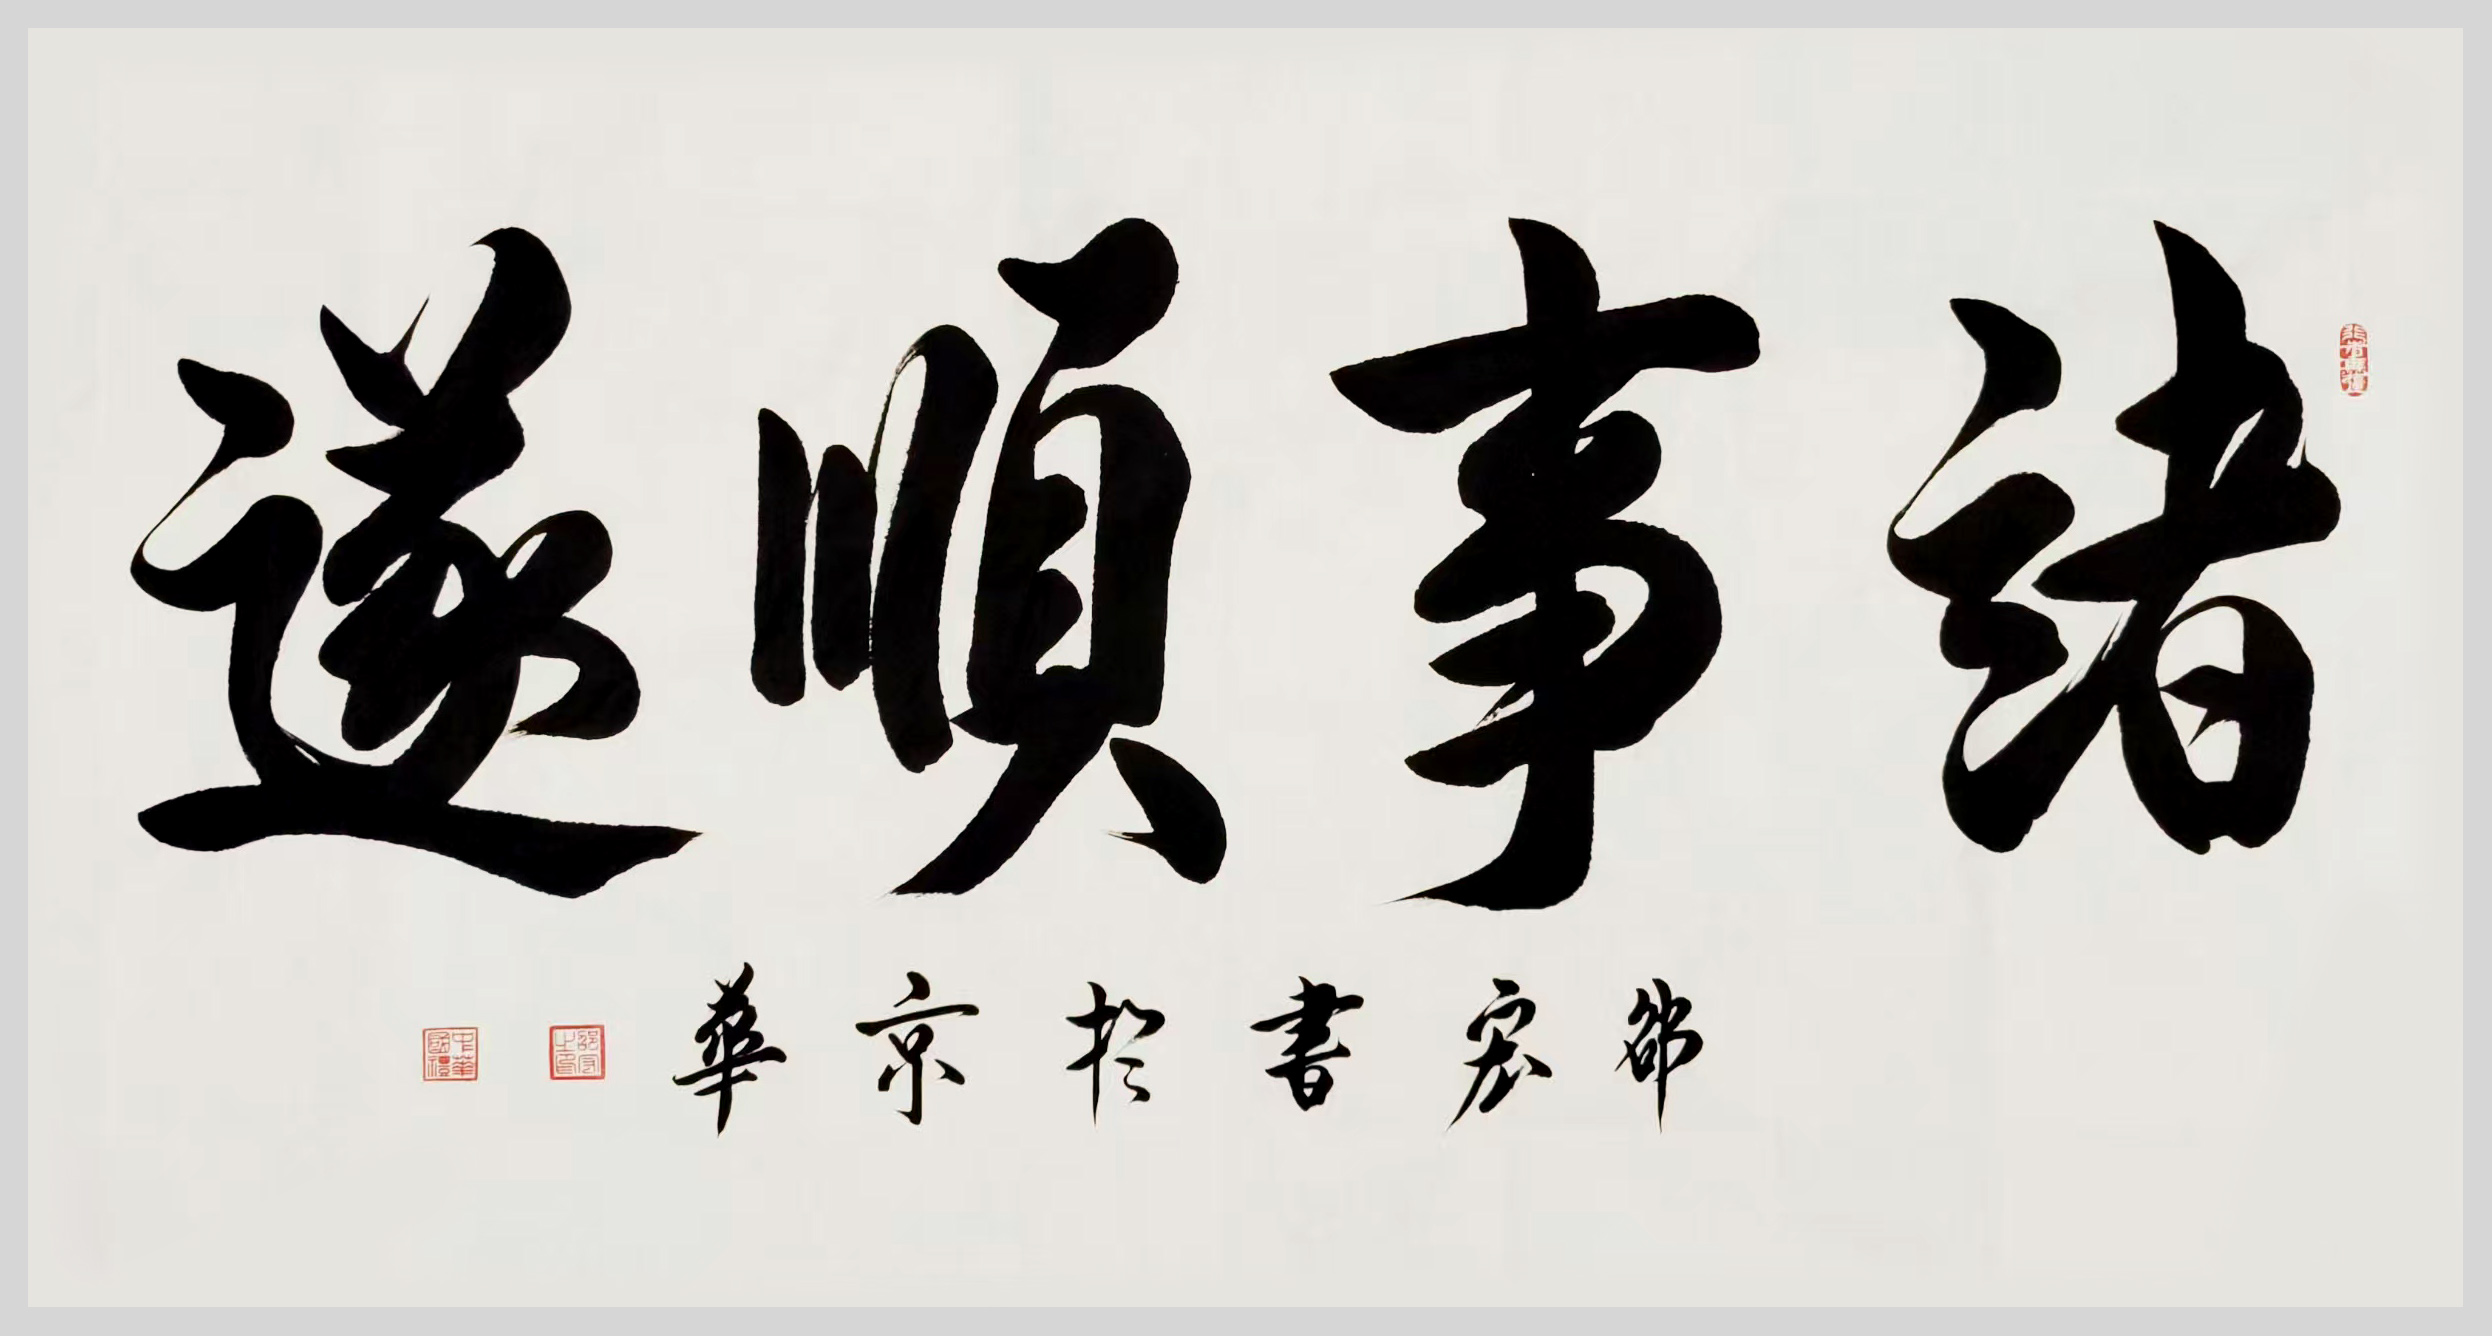 諸事順遂
邵宏書於京華
邵宏之印
中華國禮